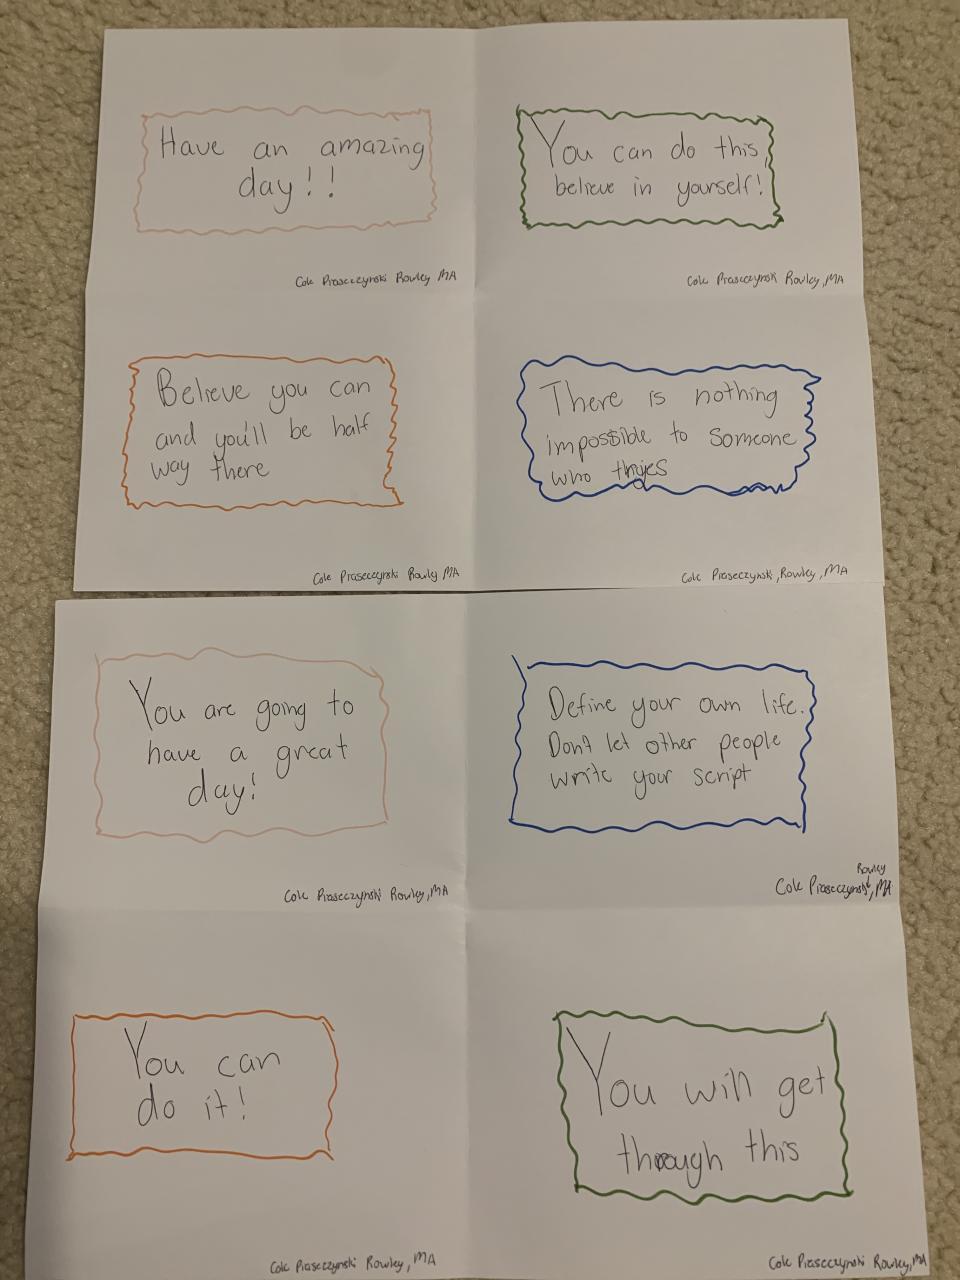 Have an amazing
day!!
Cole Piaseczynski Rowley, MA
You can do this,
believe in yourself!
Cole Piaseczynski Rowley, MA
Believe you can
and you'll be half
way there
Cole Piaseczynski Rowley MA
There is nothing
impossible to someone
who
Cole Piaseczynski, Rowley, MA
You are going to
have a great
day!
Cole Piaseczynski Rowley, MA
Define your own life.
Don't let other people
write your script
Rowley
Cole Piaseczynski, MA
You can
do it!
Cole Piaseczynski Rowley, MA
You will get
through this
Cole Piaseczynski Rowley, MA